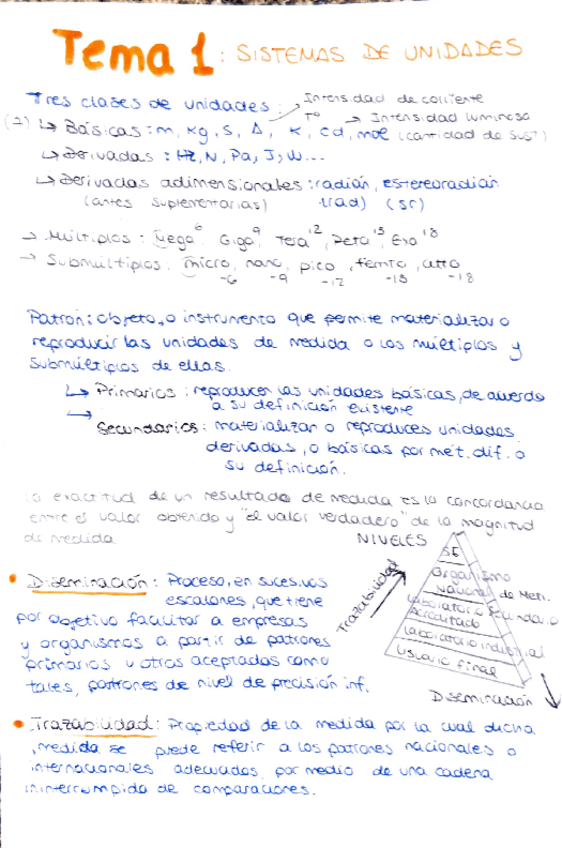 Tema 1: SISTEMAS DE UNIDADES
Tres clases de unidades:
Intensidad de corriente
Tº → Intensidad luminosa
↳ Básicas: m, Kg, S, A, K, cd, mol (cantidad de sust)
↳ Derivadas: Hz, N, Pa, J, W...
↳ Derivadas adimensionales: radián, estereoradián
(antes suplementarias) (rad) (sr)
→ Múltiplos: Mega⁶, Giga⁹, Tera¹², Peta¹⁵, Exa¹⁸
→ Submúltiplos: micro, nano, pico, femto, atto
-6 -9 -12 -15 -18
Patrón: objeto, o instrumento que permite materializar o
reproducir las unidades de medida o los múltiplos y
submúltiplos de ellas.
↳ Primarios: reproducen las unidades básicas, de acuerdo
a su definición existente
↳
Secundarios: materializan o reproduces unidades
derivadas, o básicas por mét. dif. a
su definición.
La exactitud de un resultado de medida es la concordancia
entre el valor obtenido y "el valor verdadero" de la magnitud
de medida
NIVELES
Trazabilidad
Organismo
Nacional de Metr.
Laboratorio Secundario
acreditado
Laboratorio industrial
Usuario final
Diseminación
• Diseminación: Proceso, en sucesivos
escalones, que tiene
por objetivo facilitar a empresas
y organismos a partir de patrones
primarios u otros aceptados como
tales, patrones de nivel de precisión inf.
• Trazabilidad: Propiedad de la medida por la cual dicha
medida se puede referir a los patrones nacionales o
internacionales adecuados, por medio de una cadena
ininterrumpida de comparaciones.